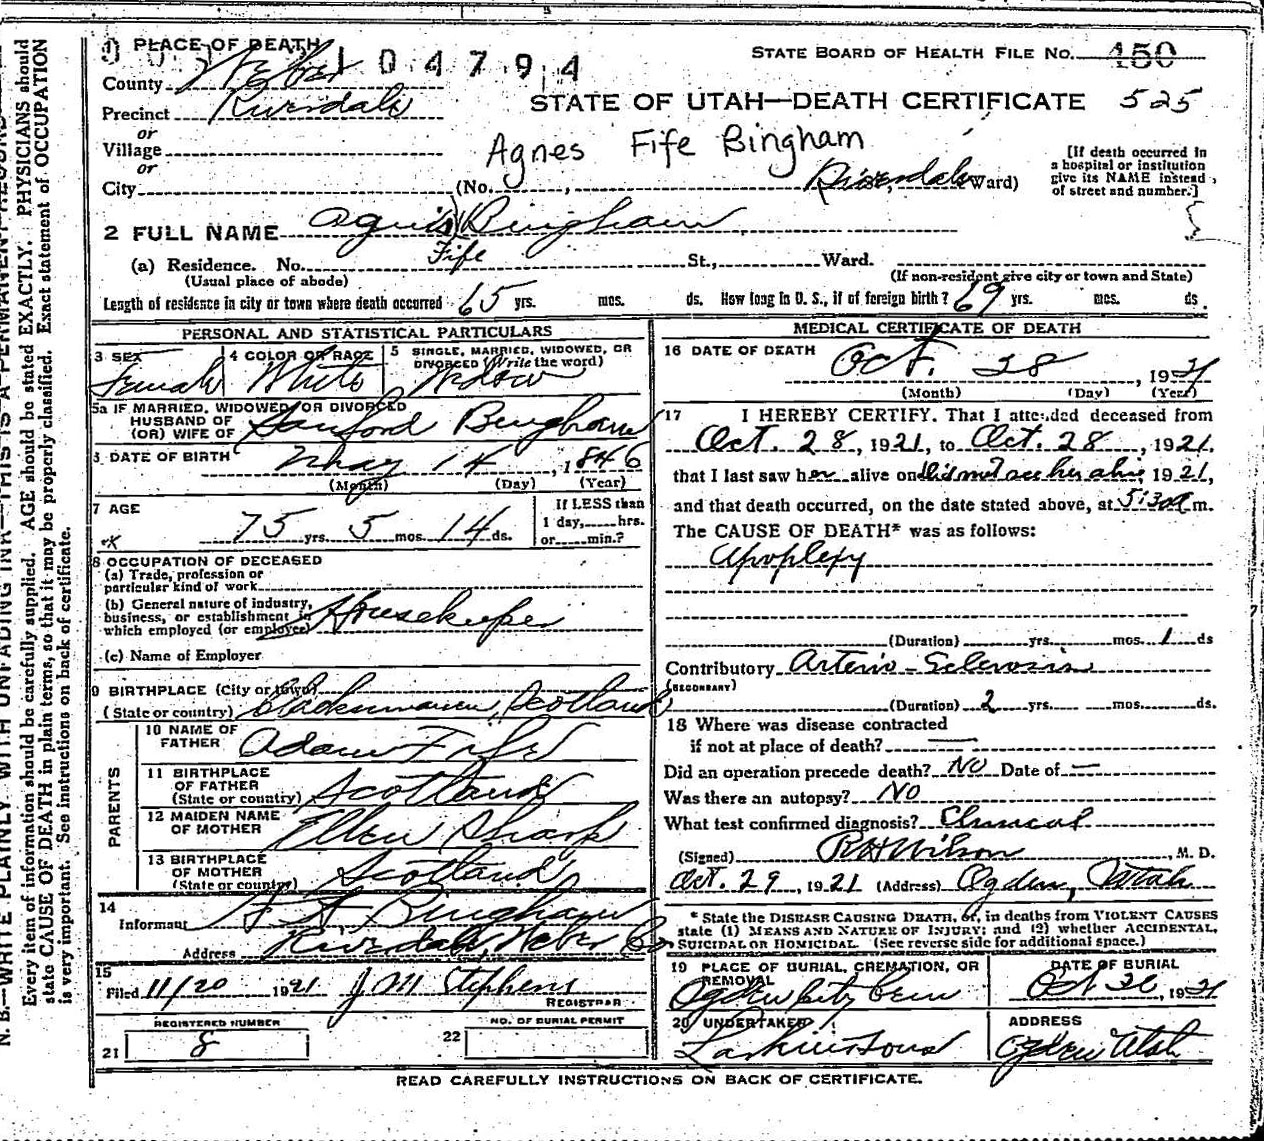 N. B.—WRITE PLAINLY WITH UNFADING INK—THIS IS A PERMANENT RECORD
Every item of information should be carefully supplied. AGE should be stated EXACTLY. PHYSICIANS should
state CAUSE OF DEATH in plain terms, so that it may be properly classified. Exact statement of OCCUPATION
is very important. See instructions on back of certificate.
1) PLACE OF DEATH
104794
STATE BOARD OF HEALTH FILE No. 450
County Weber
STATE OF UTAH—DEATH CERTIFICATE 525
Precinct Riverdale
or
Village
or
Agnes Fife Bingham
[If death occurred in
a hospital or institution
give its NAME instead
of street and number.]
City (No. , Riverdale Ward)
2 FULL NAME Agnes Bingham
Fife
(a) Residence. No. St., Ward.
(Usual place of abode) (If non-resident give city or town and State)
Length of residence in city or town where death occurred 65 yrs. mos. ds. How long in U. S., if of foreign birth? 69 yrs. mos. ds.
PERSONAL AND STATISTICAL PARTICULARS
3 SEX Female
4 COLOR OR RACE White
5 SINGLE, MARRIED, WIDOWED, OR
DIVORCED (Write the word)
Widow
5a IF MARRIED, WIDOWED, OR DIVORCED
HUSBAND OF
(OR) WIFE OF Sanford Bingham
6 DATE OF BIRTH May 14, 1846
(Month) (Day) (Year)
7 AGE
75 yrs. 5 mos. 14 ds.
If LESS than
1 day, hrs.
or min.?
8 OCCUPATION OF DECEASED
(a) Trade, profession or
particular kind of work
(b) General nature of industry,
business, or establishment in
which employed (or employer) Housekeeper
(c) Name of Employer
9 BIRTHPLACE (City or town)
(State or country) Clackmannan, Scotland
PARENTS
10 NAME OF
FATHER Adam Fife
11 BIRTHPLACE
OF FATHER
(State or country) Scotland
12 MAIDEN NAME
OF MOTHER Ellen Sharp
13 BIRTHPLACE
OF MOTHER
(State or country) Scotland
14
Informant A. F. Bingham
Address Riverdale, Weber Co
15
Filed 11/20 1921 J M Stephens
REGISTRAR
REGISTERED NUMBER
21 8
NO. OF BURIAL PERMIT
22
MEDICAL CERTIFICATE OF DEATH
16 DATE OF DEATH
Oct. 28, 1921
(Month) (Day) (Year)
17 I HEREBY CERTIFY. That I attended deceased from
Oct. 28, 1921, to Oct. 28, 1921,
that I last saw her alive on Did not see her alive 1921,
and that death occurred, on the date stated above, at 5:30 A m.
The CAUSE OF DEATH* was as follows:
Apoplexy
(Duration) yrs. mos. 1 ds
Contributory Arterio-Sclerosis
(SECONDARY)
(Duration) 2 yrs. mos. ds.
18 Where was disease contracted
if not at place of death? —
Did an operation precede death? No Date of —
Was there an autopsy? No
What test confirmed diagnosis? Clinical
(Signed) R H Wilson, M. D.
Oct. 29, 1921 (Address) Ogden, Utah
* State the DISEASE CAUSING DEATH, or, in deaths from VIOLENT CAUSES
state (1) MEANS AND NATURE OF INJURY; and (2) whether ACCIDENTAL,
SUICIDAL OR HOMICIDAL. (See reverse side for additional space.)
19 PLACE OF BURIAL, CREMATION, OR
REMOVAL
Ogden City Cem
DATE OF BURIAL
Oct 30, 1921
20 UNDERTAKER
Larkin & Sons
ADDRESS
Ogden Utah
READ CAREFULLY INSTRUCTIONS ON BACK OF CERTIFICATE.